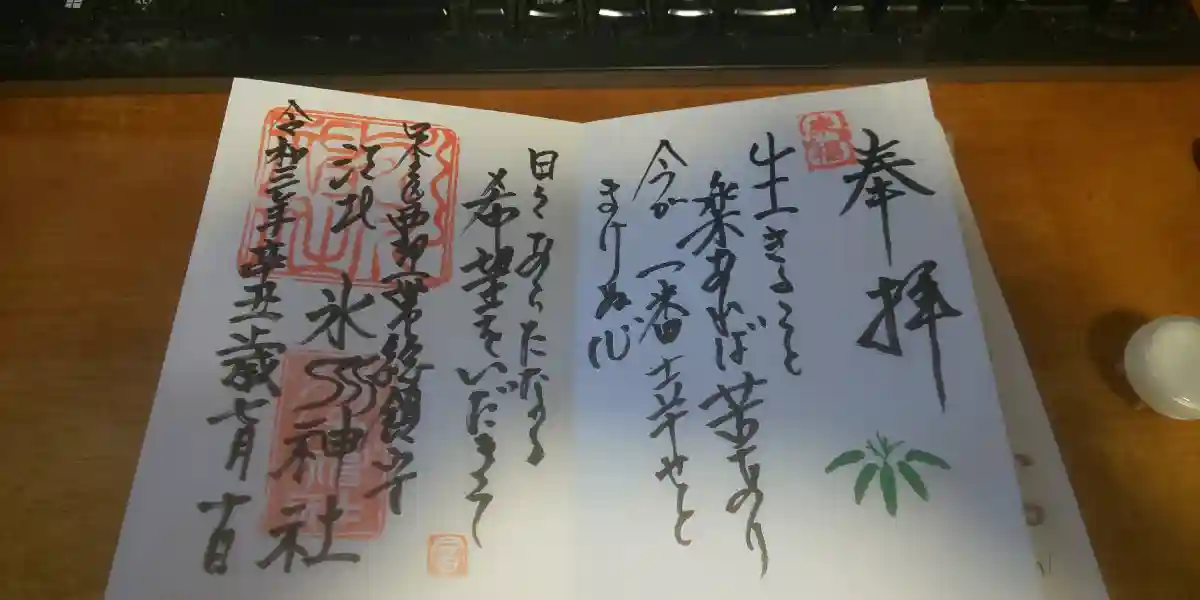 奉拝
生きること
楽あれば苦あり
今が一番幸せと
まけぬ心
日々あらたなる
希望をいだきて
足立西部一帯総鎮守
江北 氷川神社
令和三年辛丑歳七月十日